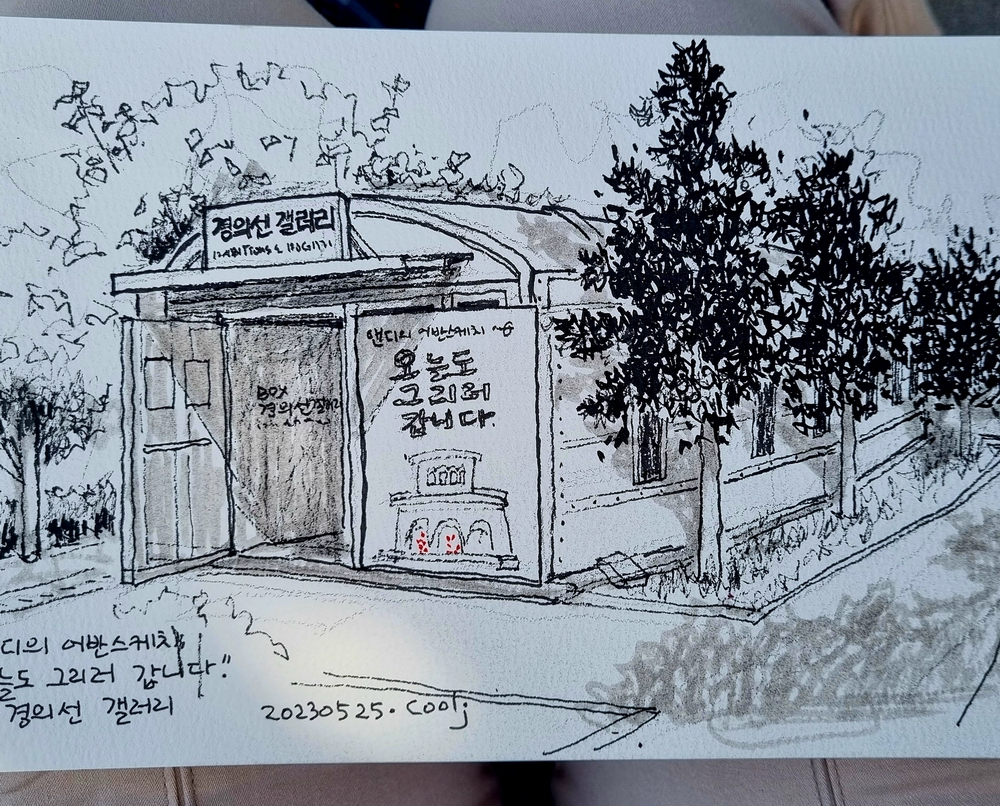 경의선 갤러리
앤디의 어반스케치
오늘도
그리러
갑니다.
BOX
경의선갤러리
디의 어반스케치
늘도 그리러 갑니다."
경의선 갤러리
20230525. coolj